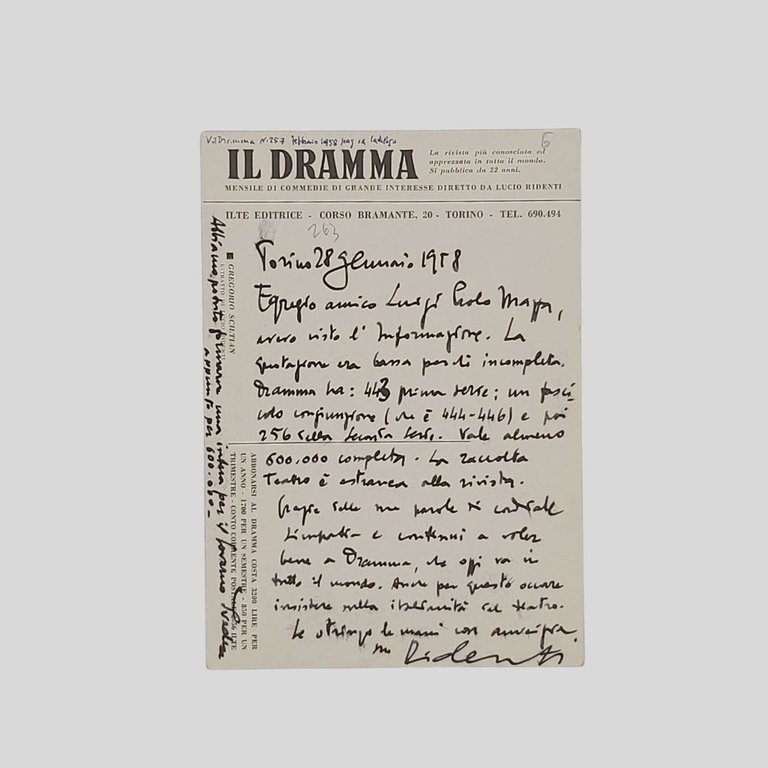 Il Dramma N. 257 Febbraio 1958 pag 12
6
IL DRAMMA
La rivista più conosciuta ed
apprezzata in tutto il mondo.
Si pubblica da 32 anni.
MENSILE DI COMMEDIE DI GRANDE INTERESSE DIRETTO DA LUCIO RIDENTI
ILTE EDITRICE - CORSO BRAMANTE, 20 - TORINO - TEL. 690.494
263
Torino 28 gennaio 1958
Egregio amico Luigi Paolo
avevo visto l'Informazione. La
quotazione era bassa perché incompleta.
Dramma ha: 443 prima serie; un fasci
colo congiunzione (che è 444-446) e poi
256 della seconda serie. Vale almeno
600.000 completa. La raccolta
Teatro è estranea alla rivista.
Grazie delle sue parole di cordiale
simpatia e continui a voler
bene a Dramma, che oggi va in
tutto il mondo. Anche per questo occorre
insistere sulla italianità del teatro.
Le stringo le mani con amicizia.
suo Ridenti
Abbiamo potuto fornirne una intera per il governo svedese
appunto per 600.000 -
GREGORIO SCILTIAN
RITRATTO DI
ABBONARSI AL DRAMMA COSTA 3200 LIRE PER
UN ANNO - 1700 PER UN SEMESTRE - 850 PER UN
TRIMESTRE - CONTO CORRENTE POSTALE ILTE